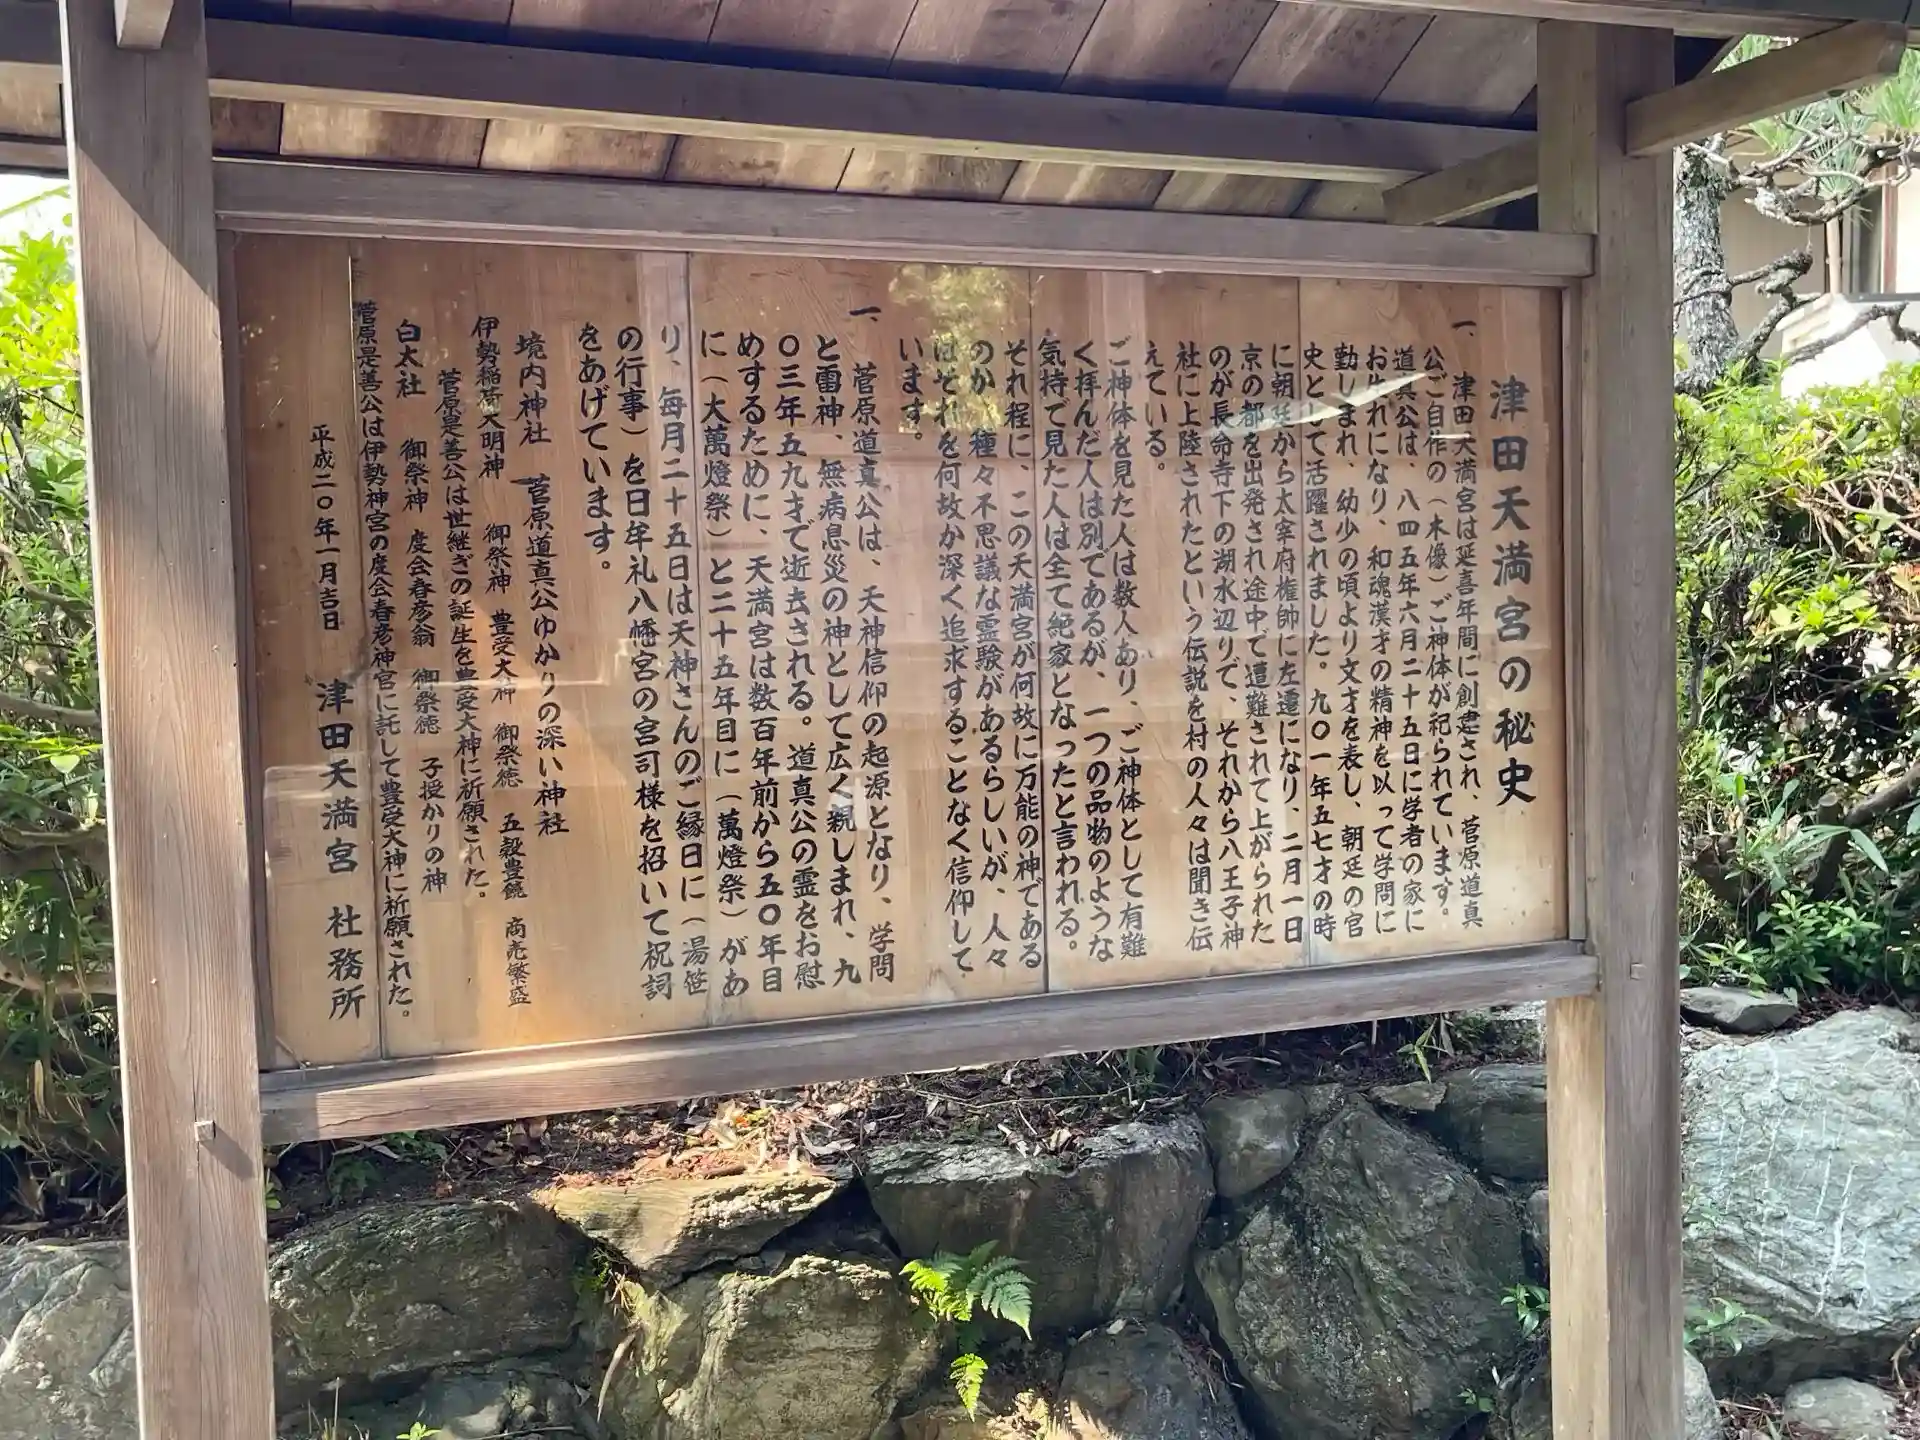 津田天満宮の秘史
一、津田天満宮は延喜年間に創建され、菅原道真
公ご自作の(木像)ご神体が祀られています。
道真公は、八四五年六月二十五日に学者の家に
お生れになり、和魂漢才の精神を以って学問に
勤しまれ、幼少の頃より文才を表し、朝廷の官
史として活躍されました。九〇一年五七才の時
に朝廷から太宰府権帥に左遷になり、二月一日
京の都を出発され途中で遭難されて上がられた
のが長命寺下の湖水辺りで、それから八王子神
社に上陸されたという伝説を村の人々は聞き伝
えている。
ご神体を見た人は数人あり、ご神体として有難
く拝んだ人は別であるが、一つの品物のような
気持で見た人は全て絶家となったと言われる。
それ程に、この天満宮が何故に万能の神である
のか、種々不思議な霊験があるらしいが、人々
はそれを何故か深く追求することなく信仰して
います。
一、菅原道真公は、天神信仰の起源となり、学問
と雷神、無病息災の神として広く親しまれ、九
〇三年五九才で逝去される。道真公の霊をお慰
めするために、天満宮は数百年前から五〇年目
に(大萬燈祭)と二十五年目に(萬燈祭)があ
り、毎月二十五日は天神さんのご縁日に(湯笹
の行事)を日牟礼八幡宮の宮司様を招いて祝詞
をあげています。
境内神社 菅原道真公ゆかりの深い神社
伊勢稲荷大明神 御祭神 豊受大神 御祭徳 五穀豊饒 商売繁盛
菅原是善公は世継ぎの誕生を豊受大神に祈願された。
白太社 御祭神 度会春彦翁 御祭徳 子授かりの神
菅原是善公は伊勢神宮の度会春彦神官に託して豊受大神に祈願された。
平成二〇年一月吉日 津田天満宮 社務所